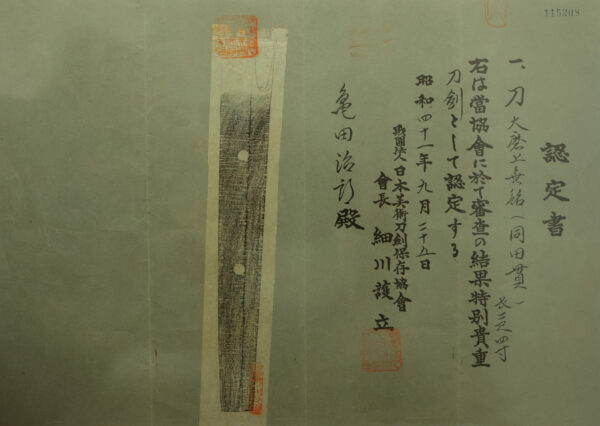 115208
認定書
一、刀 大磨上無銘(同田貫)
長二尺四寸
右は當協會に於て審査の結果特別貴重
刀劍として認定する
昭和四十一年九月二十五日
財團法人日本美術刀劍保存協會
會長 細川護立
亀田治郎殿